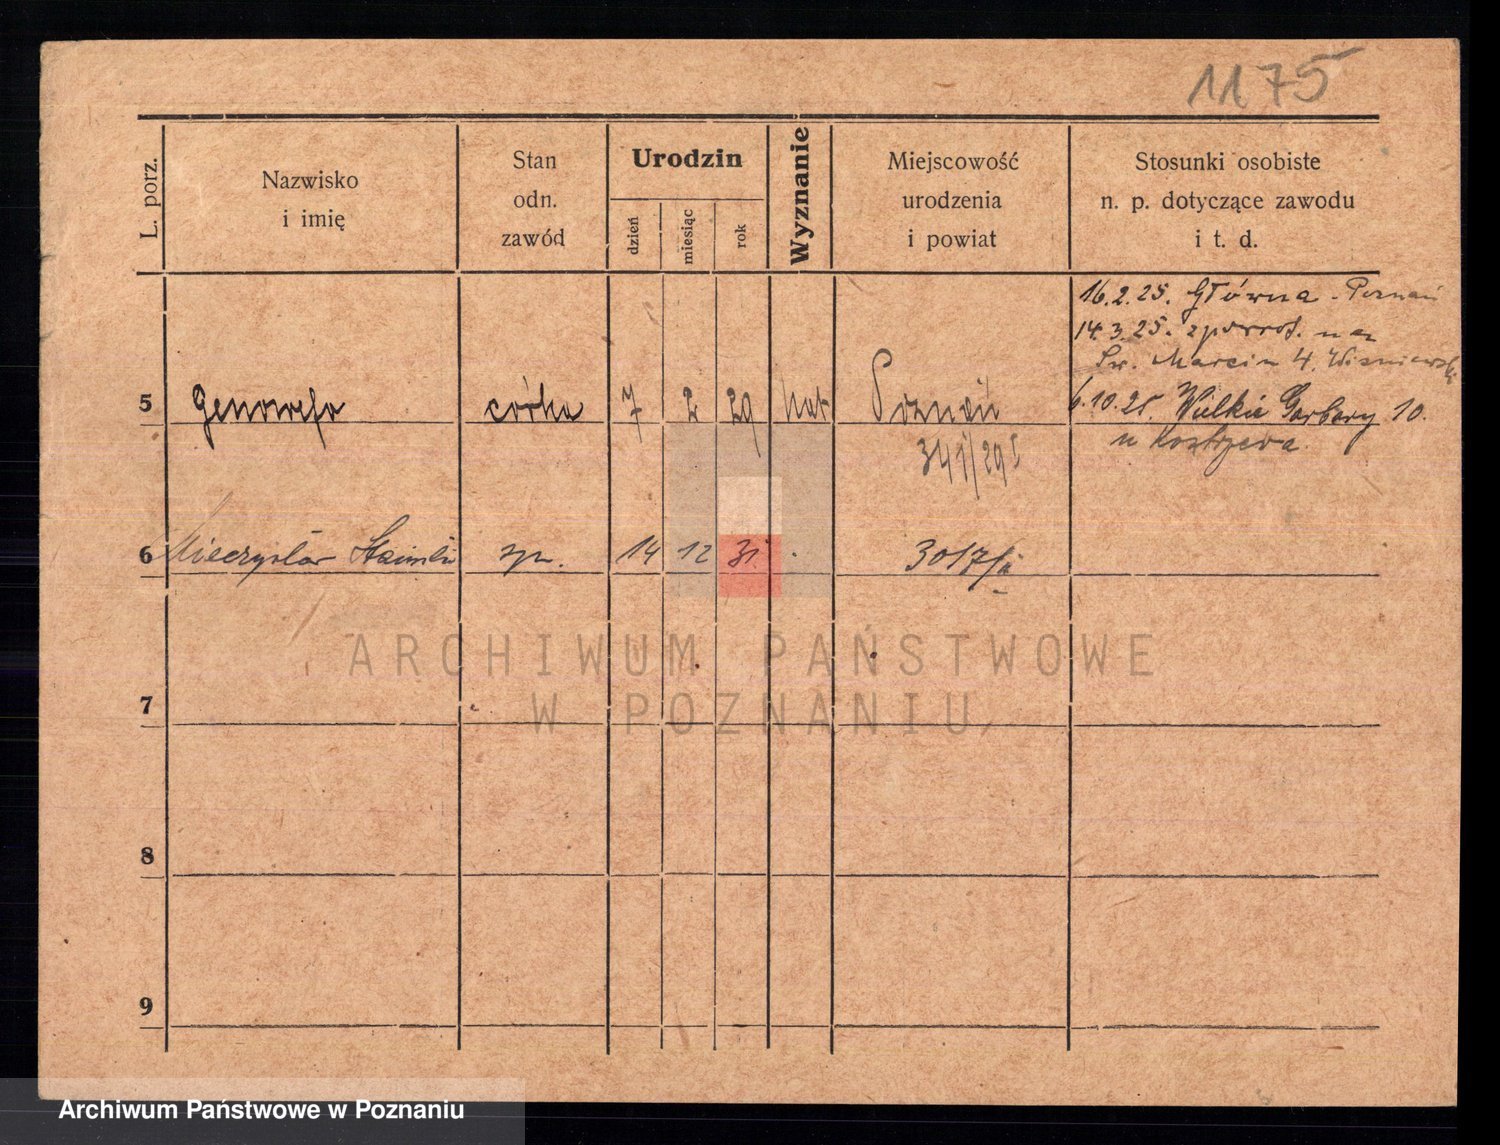 1175
L. porz.
Nazwisko
i imię
Stan
odn.
zawód
Urodzin
dzień
miesiąc
rok
Wyznanie
Miejscowość
urodzenia
i powiat
Stosunki osobiste
n. p. dotyczące zawodu
i t. d.
16.2.25. Główna - Poznań
14.3.25. na
Św. Marcin 4.
5 Genowefa córka 7 2 29 kat Poznań 6.10.25. Wielkie Garbary 10.
341/29 u Kostrzewa.
6 Mieczysław 14 12 31. 3017/
ARCHIWUM PAŃSTWOWE
W POZNANIU
7
8
9
Archiwum Państwowe w Poznaniu